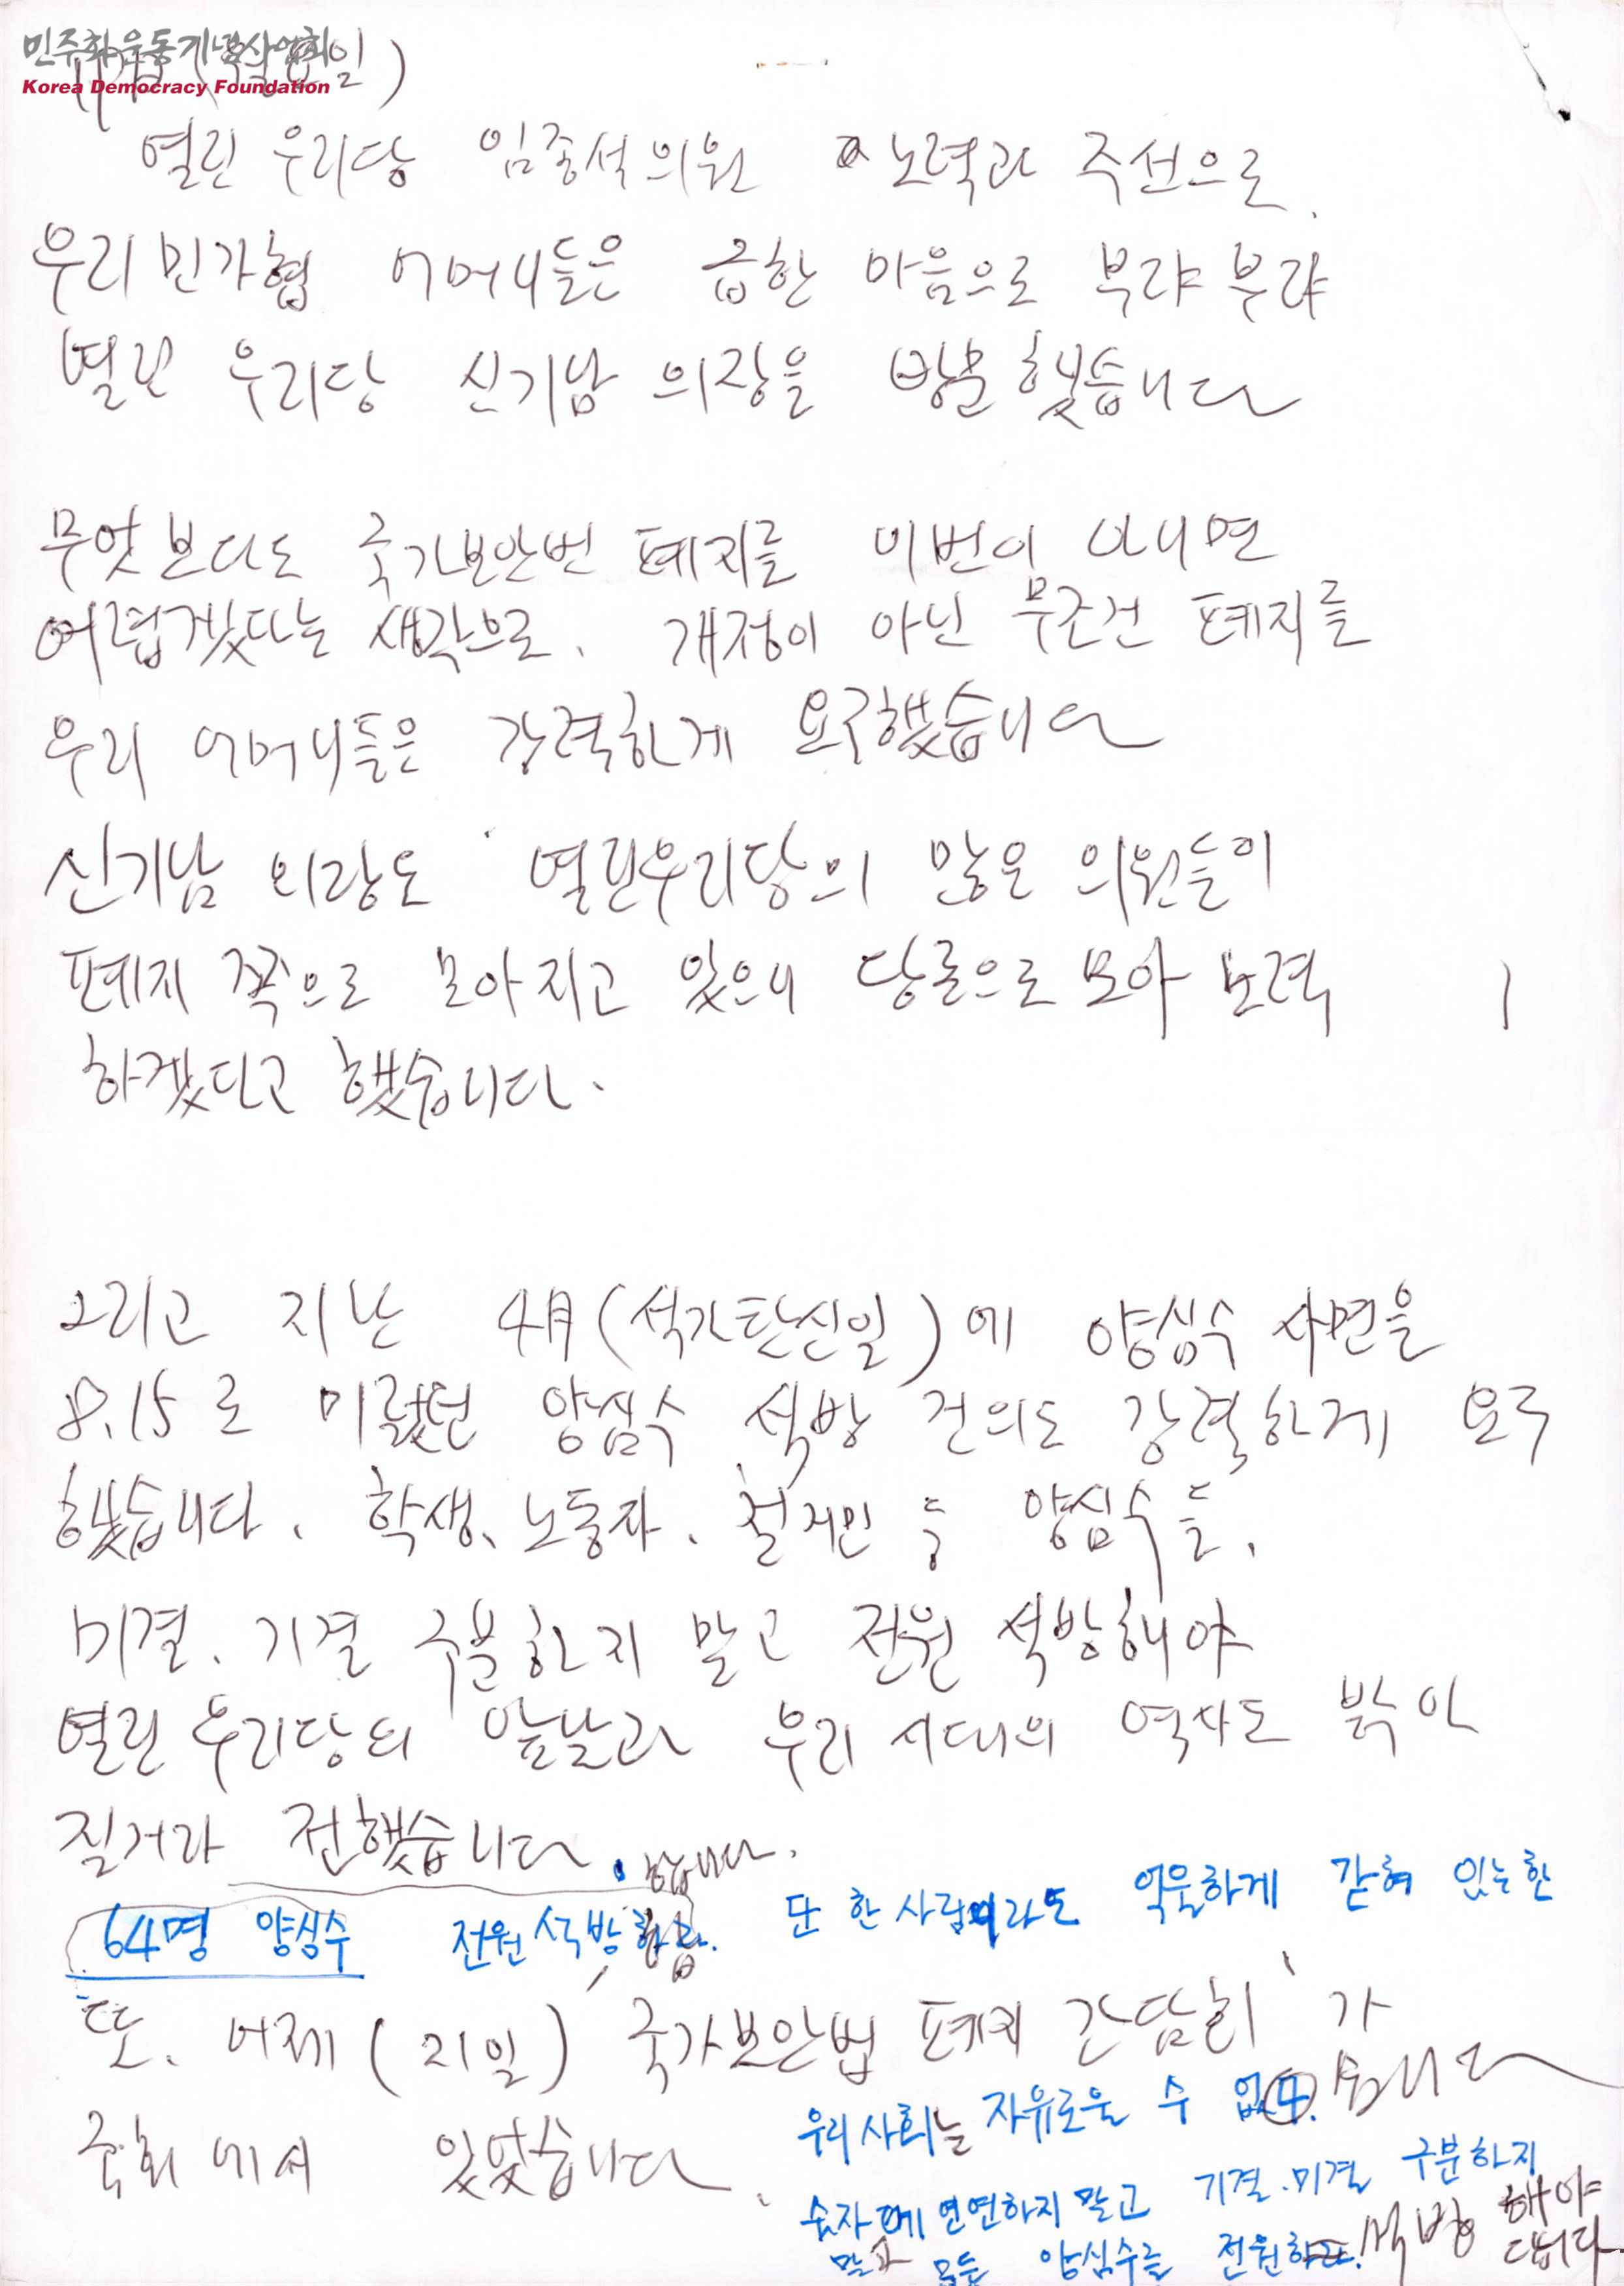 민주화운동기념사업회
Korea Democracy Foundation
열린 우리당 임종석의원 노력과 주선으로
우리 민가협 어머니들은 급한 마음으로 부랴부랴
열린 우리당 신기남 의장을 방문했습니다
무엇보다도 국가보안번 폐지를 이번이 아니면
어렵겠다는 생각으로. 개정이 아닌 무조건 폐지를
우리 어머니들은 강력하게 요구했습니다
신기남 의장도 열린우리당의 많은 의원들이
폐지 쪽으로 모아지고 있으니 당론으로 모아 노력
하겠다고 했습니다.
그리고 지난 4月(석가탄신일)에 양심수 사면을
8.15로 미뤘던 양심수 석방 건의도 강력하게 요구
했습니다. 학생, 노동자, 철거민 등 양심수들,
미결, 기결 구분하지 말고 전원 석방해야
열린 우리당의 앞날과 우리 시대의 역사도 밝아
질거라 전했습니다.
64명 양심수 전원 석방하라. 단 한 사람이라도 억울하게 갇혀 있는한
또, 어제(21일) 국가보안법 폐지 간담회'가
우리 사회는 자유로울 수 없 습니다
국회에서 있었습니다.
숫자에 연연하지 말고 기결.미결 구분하지
말고 모든 양심수를 전원 석방 해야
합니다.